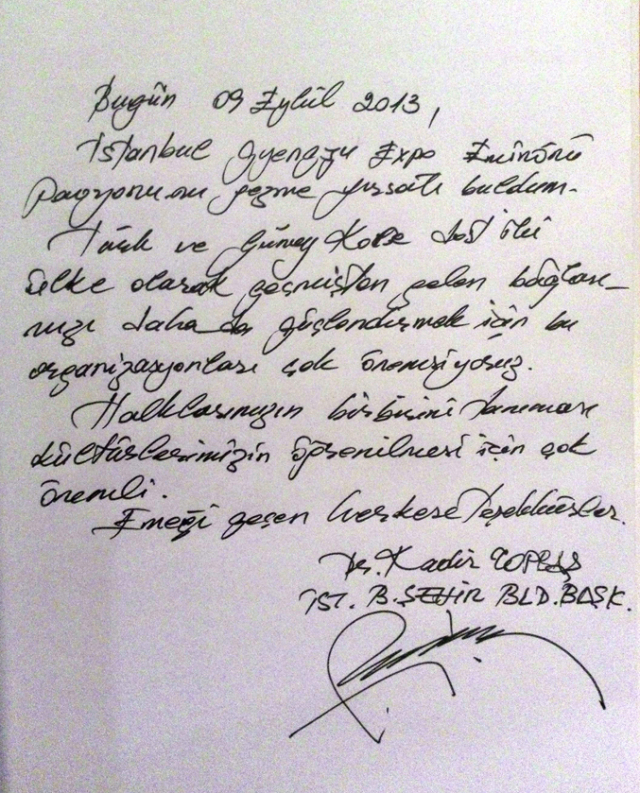 Bugün 09 Eylül 2013,
İstanbul Gyengju Expo Eminönü
Pavyonunu gezme fırsatı buldum.
Türk ve Güney Kore dost iki
ülke olarak geçmişten gelen bağları-
mızı daha da güçlendirmek için bu
organizasyonları çok önemsiyoruz.
Halklarımızın birbirini tanıması
kültürlerimizin öğrenilmesi için çok
önemli.
Emeği geçen herkese Teşekkürler.
Dr. Kadir TOPBAŞ
İST. B.ŞEHİR BLD.BAŞK.